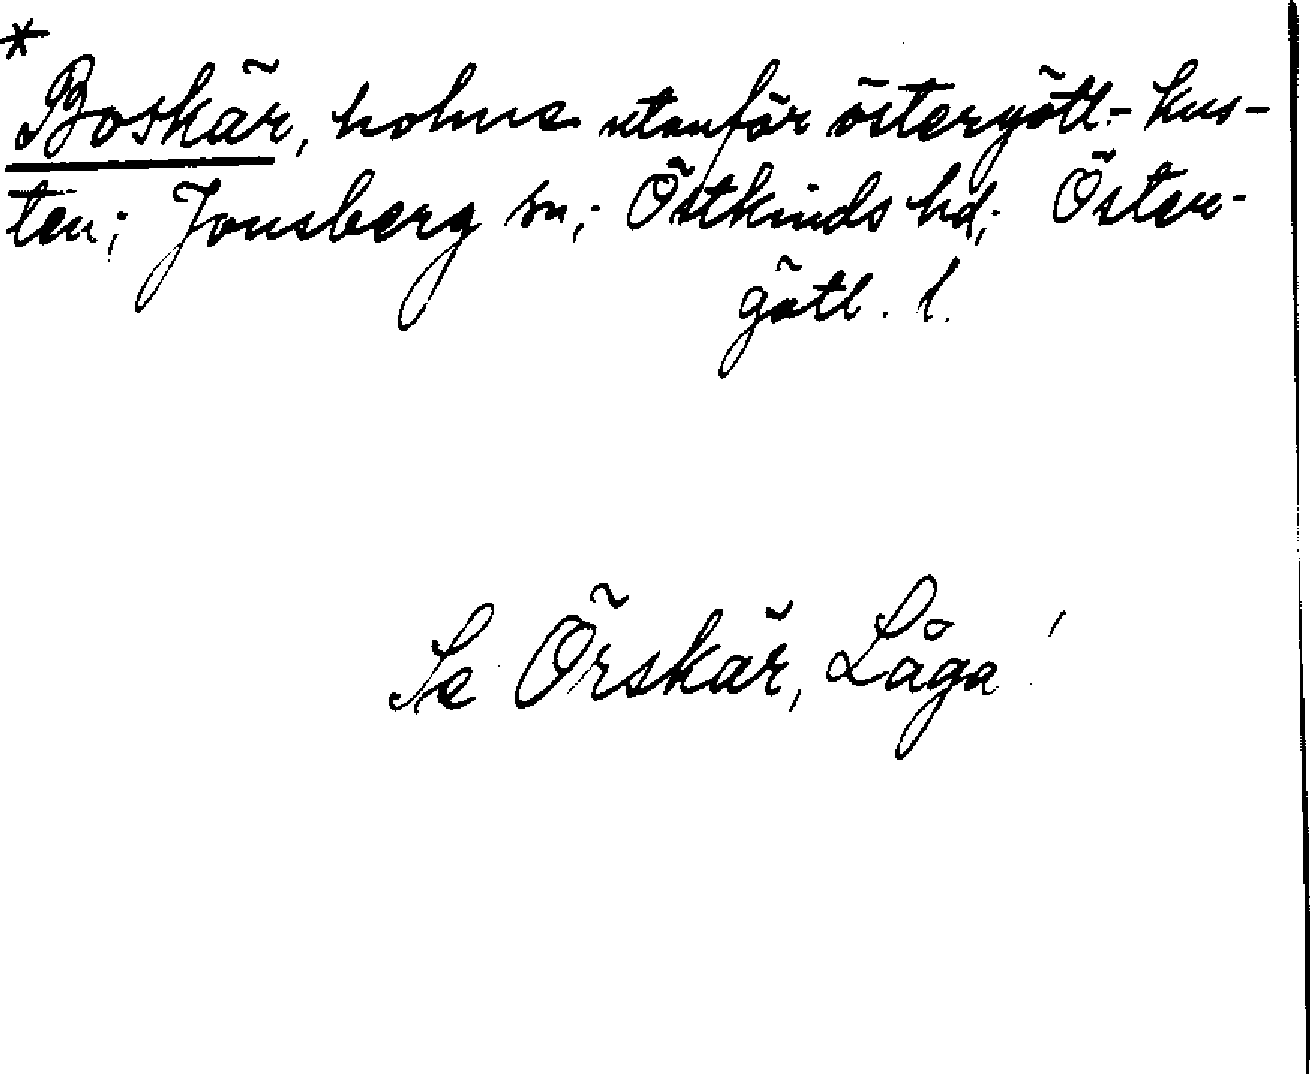 *
Boskär, holme utanför östergötl.- kus-
ten; Jonsberg sn; Östkinds hd; Öster-
götl. l.
Se Örskär, Låga!